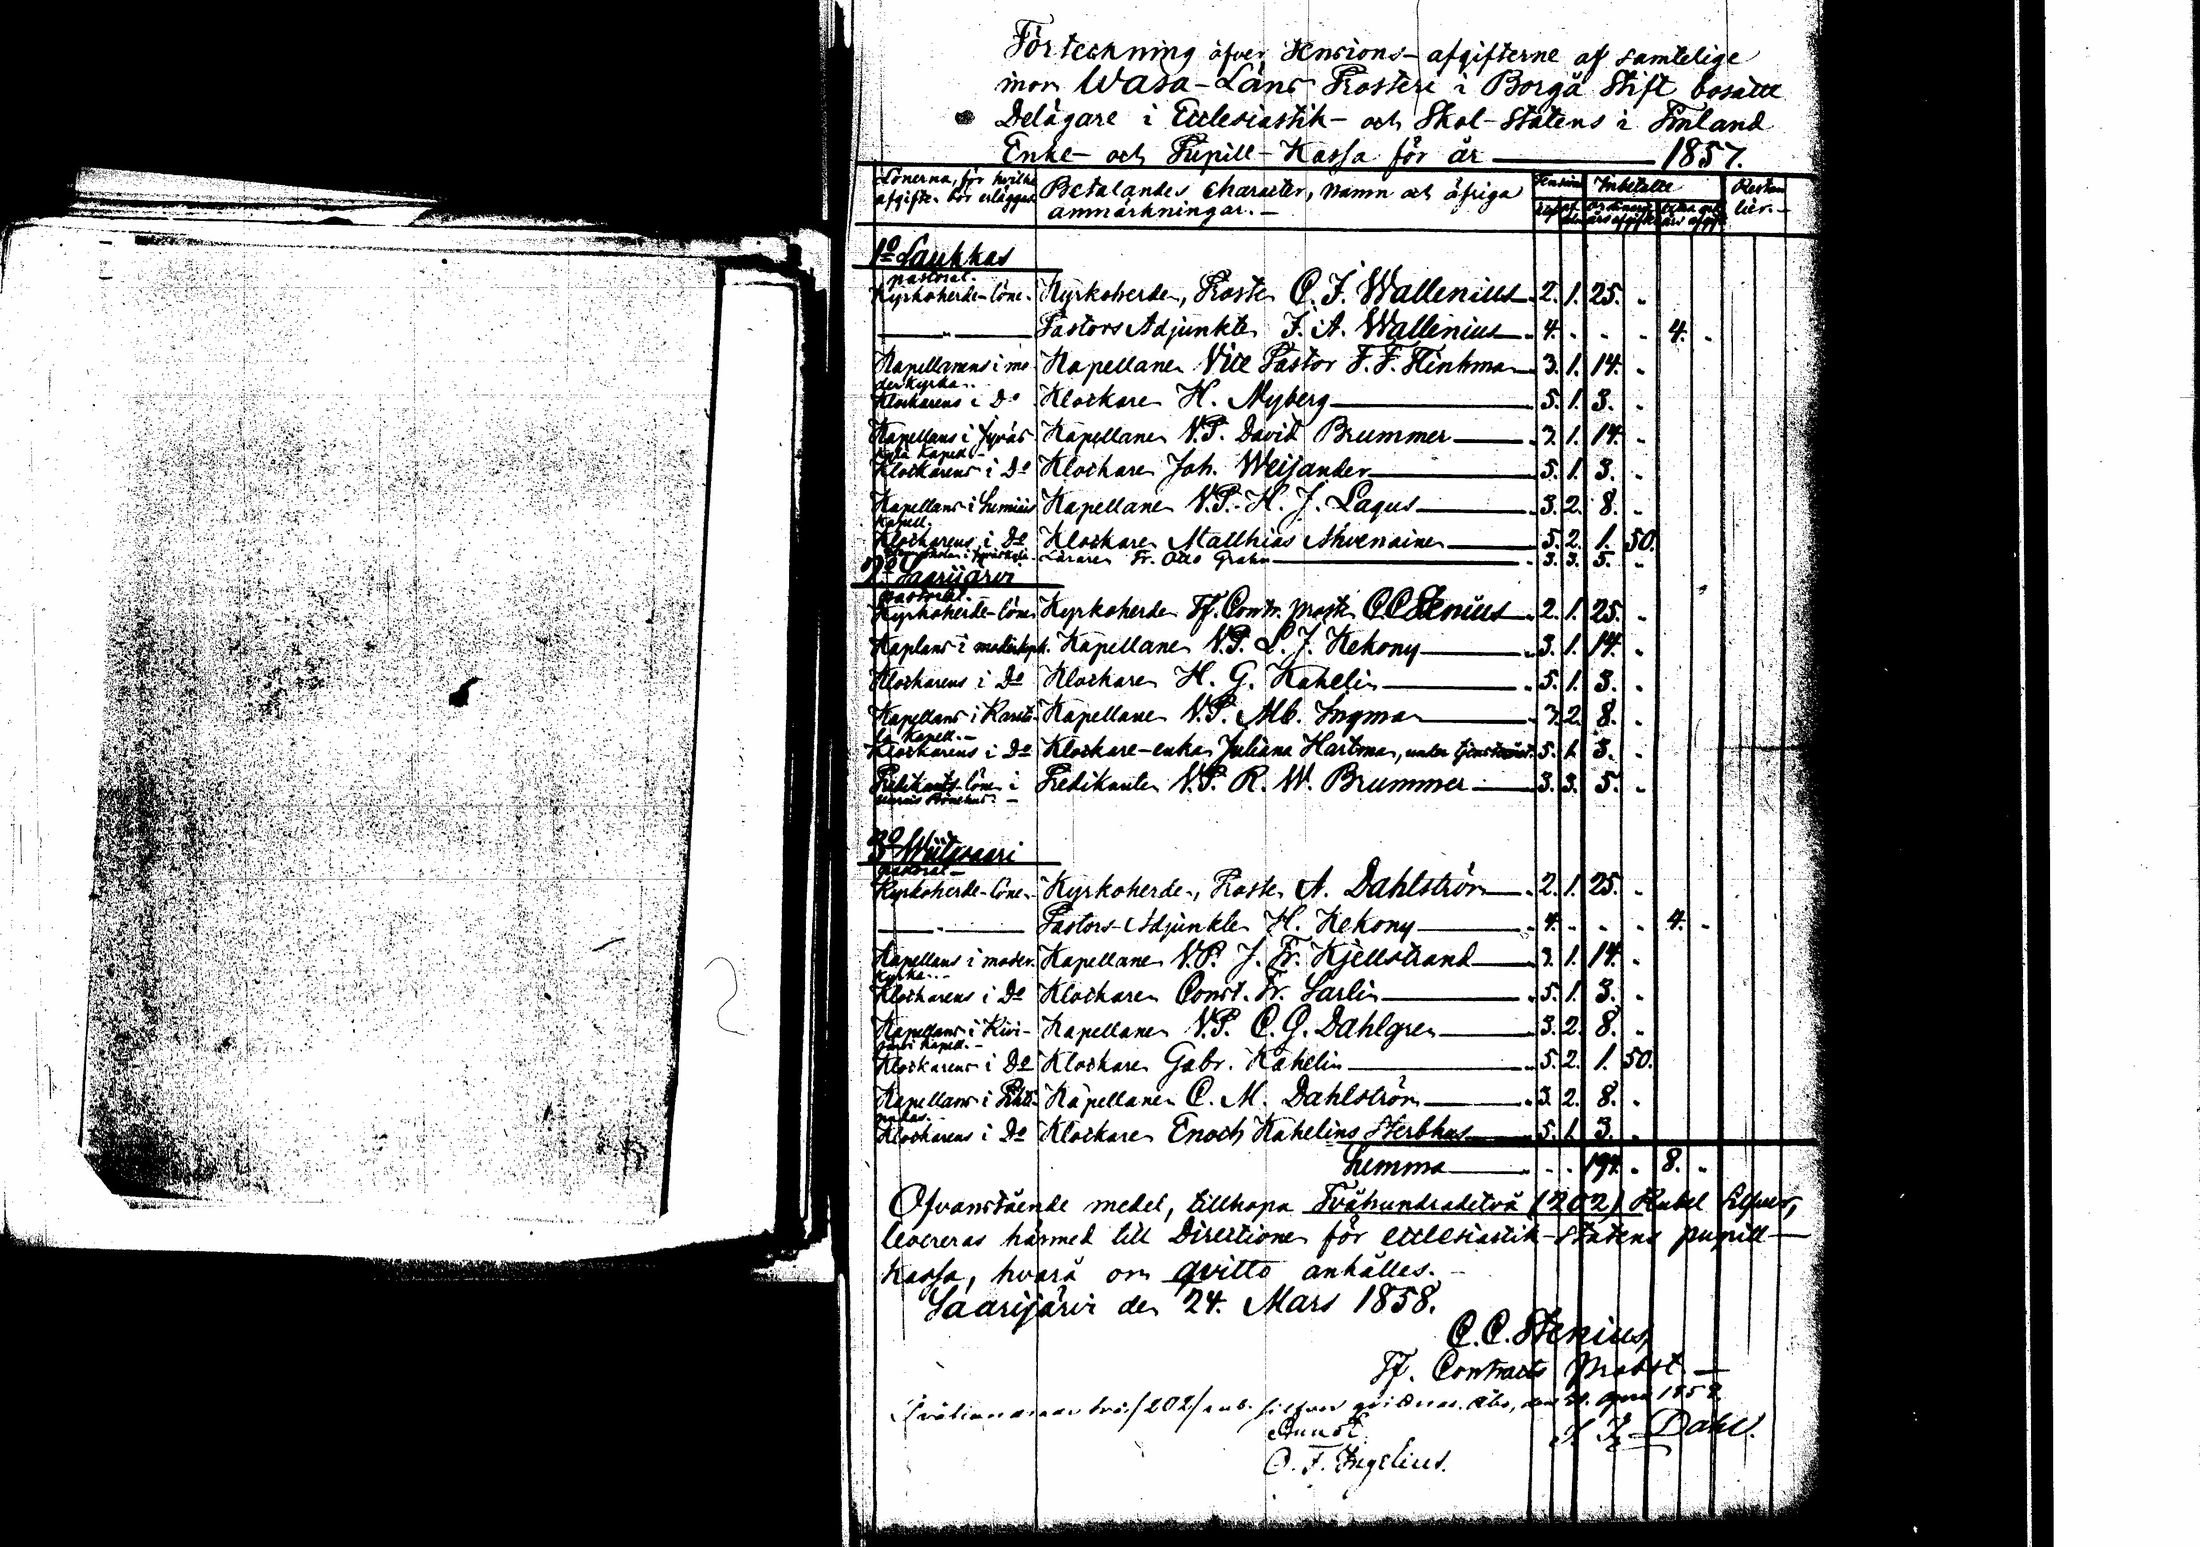 Förteckning öfver Pensions-afgifterne af samtelige
inom Wasa-Läns Prosteri i Borgå Stift bosatte
Delägare i Ecclesiastik- och Skol-Statens i Finland
Enke- och Pupill-Kassa för år — 1857.
Lönerna, för hvilka afgifter bör erläggas Betalandes Character, Namn och öfriga anmärkningar.- Inbetalte
1º Laukkas
pastorat.
Kyrkoherde-löne. Kyrkoherden, Prosten C. J. Wallenius 2. 1. 25. "
— " — Pastors Adjunkten J. A. Wallenius 4. " " " 4. "
Kapellanens i mo- Kapellanen Vice Pastor F. F. Flinkman 3. 1. 14. "
derkyrka..
Klockarens i Dº Klockaren H. Nyberg 5. 1. 3. "
Kapellans i Jyväs- Kapellanen V.P. David Brummer 3. 1. 14. "
kylä Kapell-
Klockarens i Dº Klockaren Joh. Weijander 5. 1. 3. "
Kapellans i Sumiais Kapellanen V.P. H. J. Lagus 3. 2. 8. "
Kapell.
Klockarens i Dº Klockaren Matthias Ahvenainen 5. 2. 1. 50.
Läraren Fr. Otto Grahn 3. 3. 5. "
2º Saarijärvi
pastorat.
Kyrkoherde-löne. Kyrkoherden Tf. Contr. Prosten C. C. Stenius 2. 1. 25. "
Kaplans i moderkyrk. Kapellanen V.P. L. J. Kekony 3. 1. 14. "
Klockarens i Dº Klockaren H. G. Kahelin 5. 1. 3. "
Kapellans i Karstu- Kapellanen V.P. Alb. Ingman 3. 2. 8. "
la Kapell.-
Klockarens i Dº Klockare-enkan Juliana Hartman, under 5. 1. 3. "
Predikants-löne i Predikanten V.P. R. W. Brummer 3. 3. 5. "
3º Wiitasaari
pastorat-
Kyrkoherde-löne. Kyrkoherden, Prosten A. Dahlström 2. 1. 25. "
— " — Pastors-Adjunkten H. Kekony 4. " " " 4. "
Kapellans i moder- Kapellanen V.P. J. Fr. Kjellstrand 3. 1. 14. "
kyrka...
Klockarens i Dº Klockaren Const. Fr. Sarlin 5. 1. 3. "
Kapellans i Kivi- Kapellanen V.P. C. G. Dahlgren 3. 2. 8. "
järvi Kapell.-
Klockarens i Dº Klockaren Gabr. Kahelin 5. 2. 1. 50.
Kapellans i Pihti- Kapellanen C. M. Dahlström 3. 2. 8. "
pudas.
Klockarens i Dº Klockaren Enoch Kahelins Sterbhus 5. 1. 3. "
Summa " " " 194. " 8. "
Ofvanstående medel, tillhopa Tvåhundradetvå (202) Rubel Silfver,
levereras härmed till Directionen för ecclesiastik-Statens pupill-
kassa, hvarå om qvitto anhålles.-
Saarijärvi den 24. Mars 1858.
C. C. Stenius,
Tf. Contracts Probst.
två /202/ rub. silfver Åbo, den April 1858
Dahl.
C. F. Ingelius.